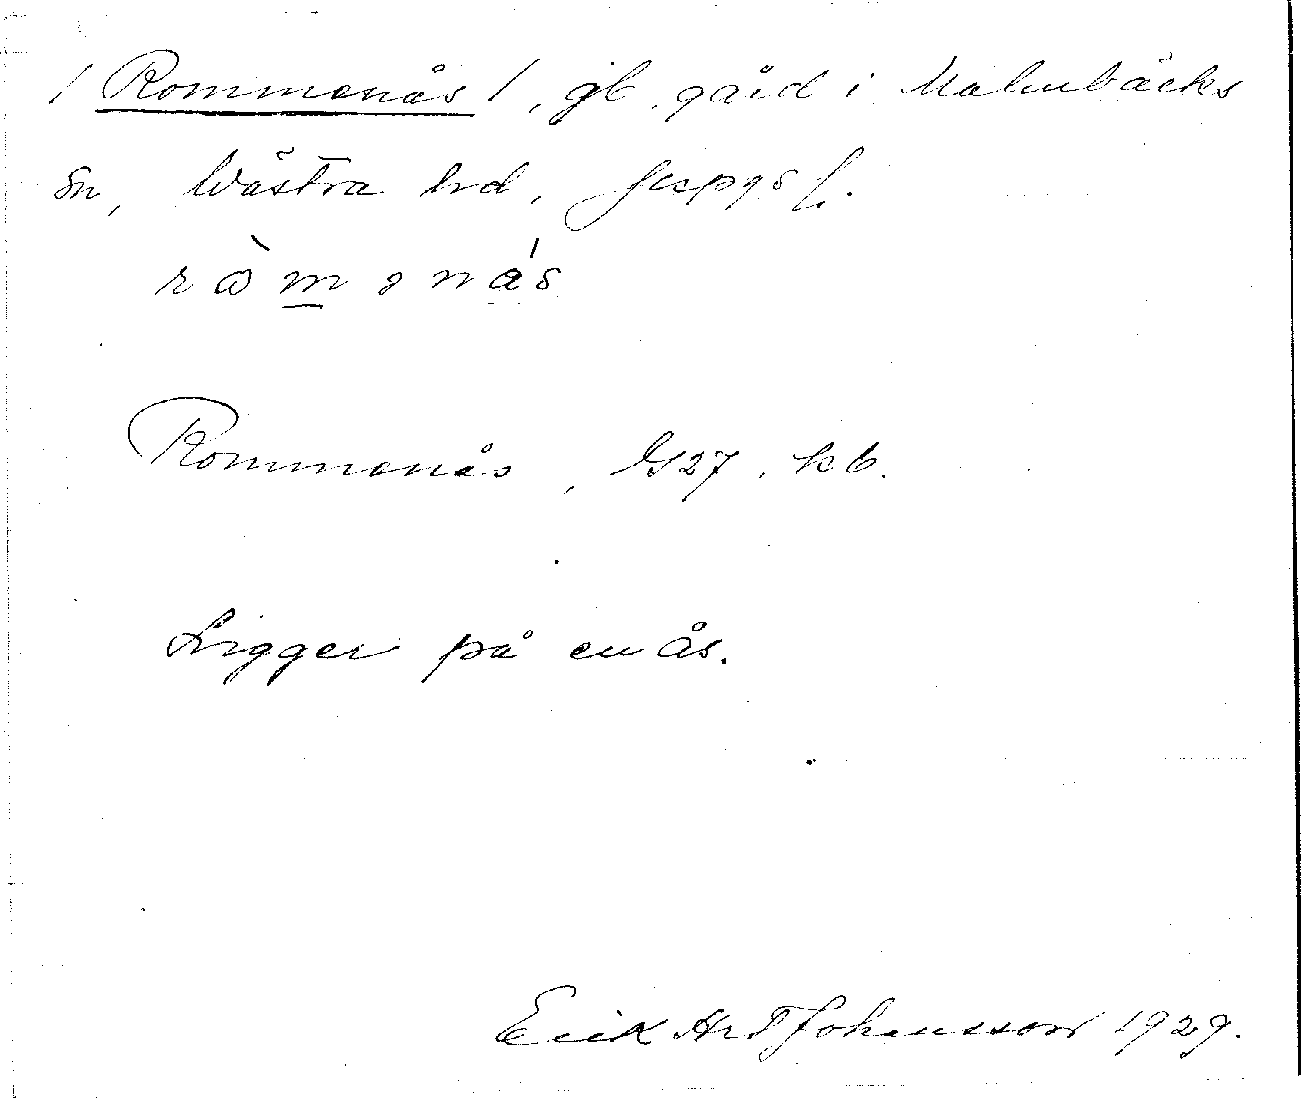 / Rommenås /, gb. gård i Malmbäcks
sn, Västra hd, Jkpgs l.
ròmenás
Rommenås, kb.
Ligger på en ås.
Erik Johansson 1929.